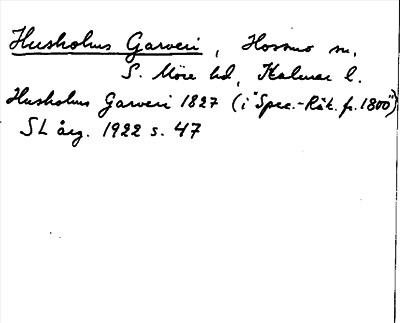 Husholms Garveri, Hossmo sn,
S. Möre hd, Kalmar l.
Husholms Garveri 1827 (i "Spec.-Räk. fr. 1800")
SL årg. 1922 s. 47